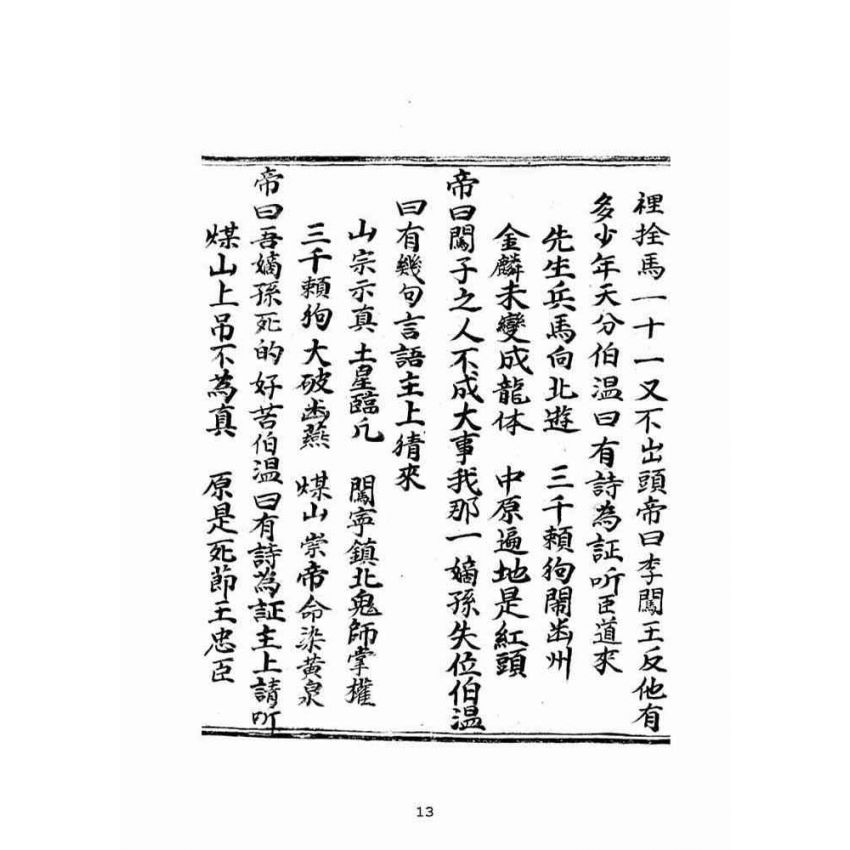 裡拴馬一十一又不出頭帝曰李闖王反他有
多少年天分伯温曰有詩為証听臣道來
先生兵馬向北遊 三千頼狗鬧幽州
金麟未變成龍体 中原遍地是紅頭
帝曰闖子之人不成大事我那一嫡孫失位伯温
曰有幾句言語主上猜來
山宗示真 土星臨凢 闖寧鎮北鬼師掌權
三千頼狗大破幽燕 煤山崇帝命染黄泉
帝曰吾嫡孫死的好苦伯温曰有詩為証主上請听
煤山上吊不為真 原是死節王忠臣
13